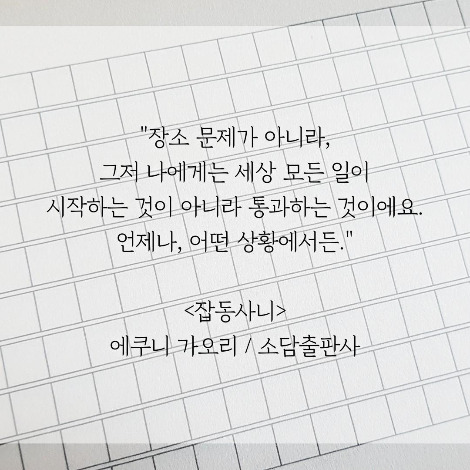 "장소 문제가 아니라,
그저 나에게는 세상 모든 일이
시작하는 것이 아니라 통과하는 것이에요.
언제나, 어떤 상황에서든."
<잡동사니>
에쿠니 가오리 / 소담출판사